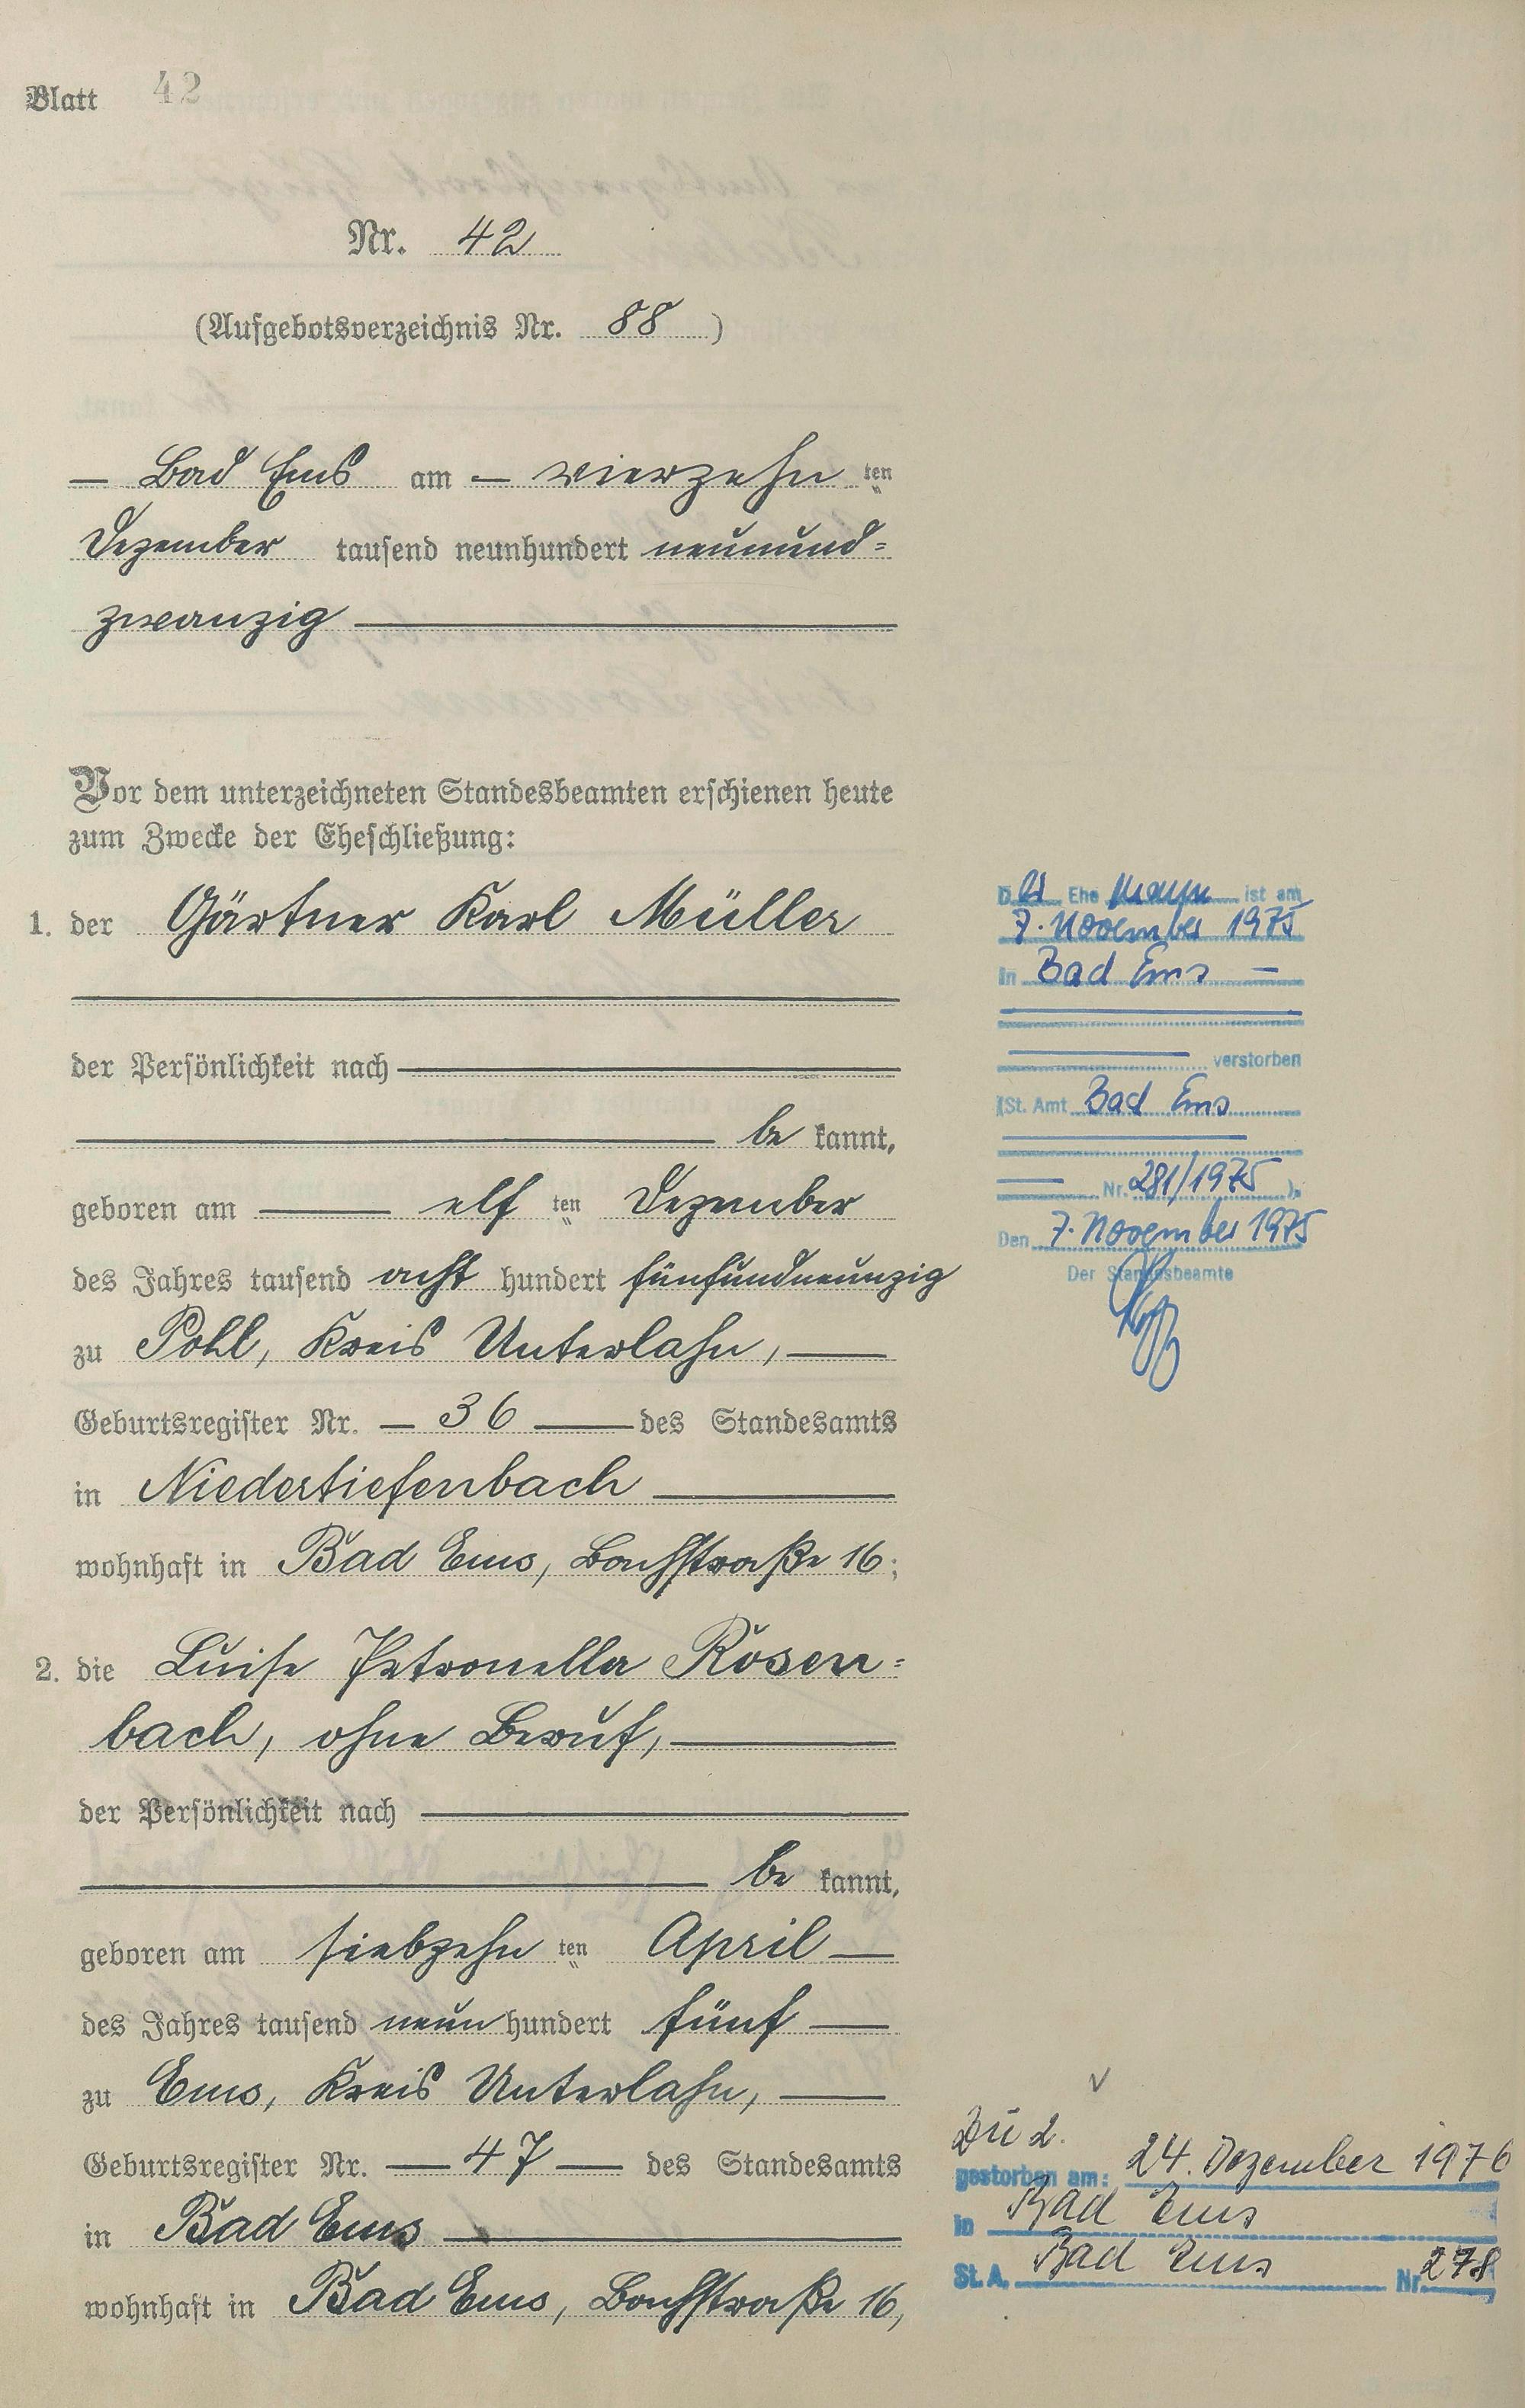 Blatt 42
Nr. 42
(Aufgebotsverzeichnis Nr. 88)
— Bad Ems am — vierzehn ten
Dezember tausend neunhundert neunund=
zwanzig —
Vor dem unterzeichneten Standesbeamten erschienen heute
zum Zwecke der Eheschließung:
1. der Gärtner Karl Müller
der Persönlichkeit nach —
— be kannt,
geboren am — elf ten Dezember
des Jahres tausend acht hundert fünfundneunzig
zu Pohl, Kreis Unterlahn, —
Geburtsregister Nr. — 36 — des Standesamts
in Niedertiefenbach —
wohnhaft in Bad Ems, Bachstraße 16;
2. die Luise Petronella Rosen=
bach, ohne Beruf, —
der Persönlichkeit nach —
— be kannt,
geboren am siebzehn ten April —
des Jahres tausend neun hundert fünf —
zu Ems, Kreis Unterlahn, —
Geburtsregister Nr. — 47 — des Standesamts
in Bad Ems —
wohnhaft in Bad Ems, Bachstraße 16,
Der Ehe mann ist am
7. November 1975
in Bad Ems —
— verstorben
(St. Amt Bad Ems
— Nr. 281/1975 ).
Den 7. November 1975
Der Standesbeamte
Zu 2.
gestorben am: 24. Dezember 1976
in Bad Ems
St. A. Bad Ems Nr. 278